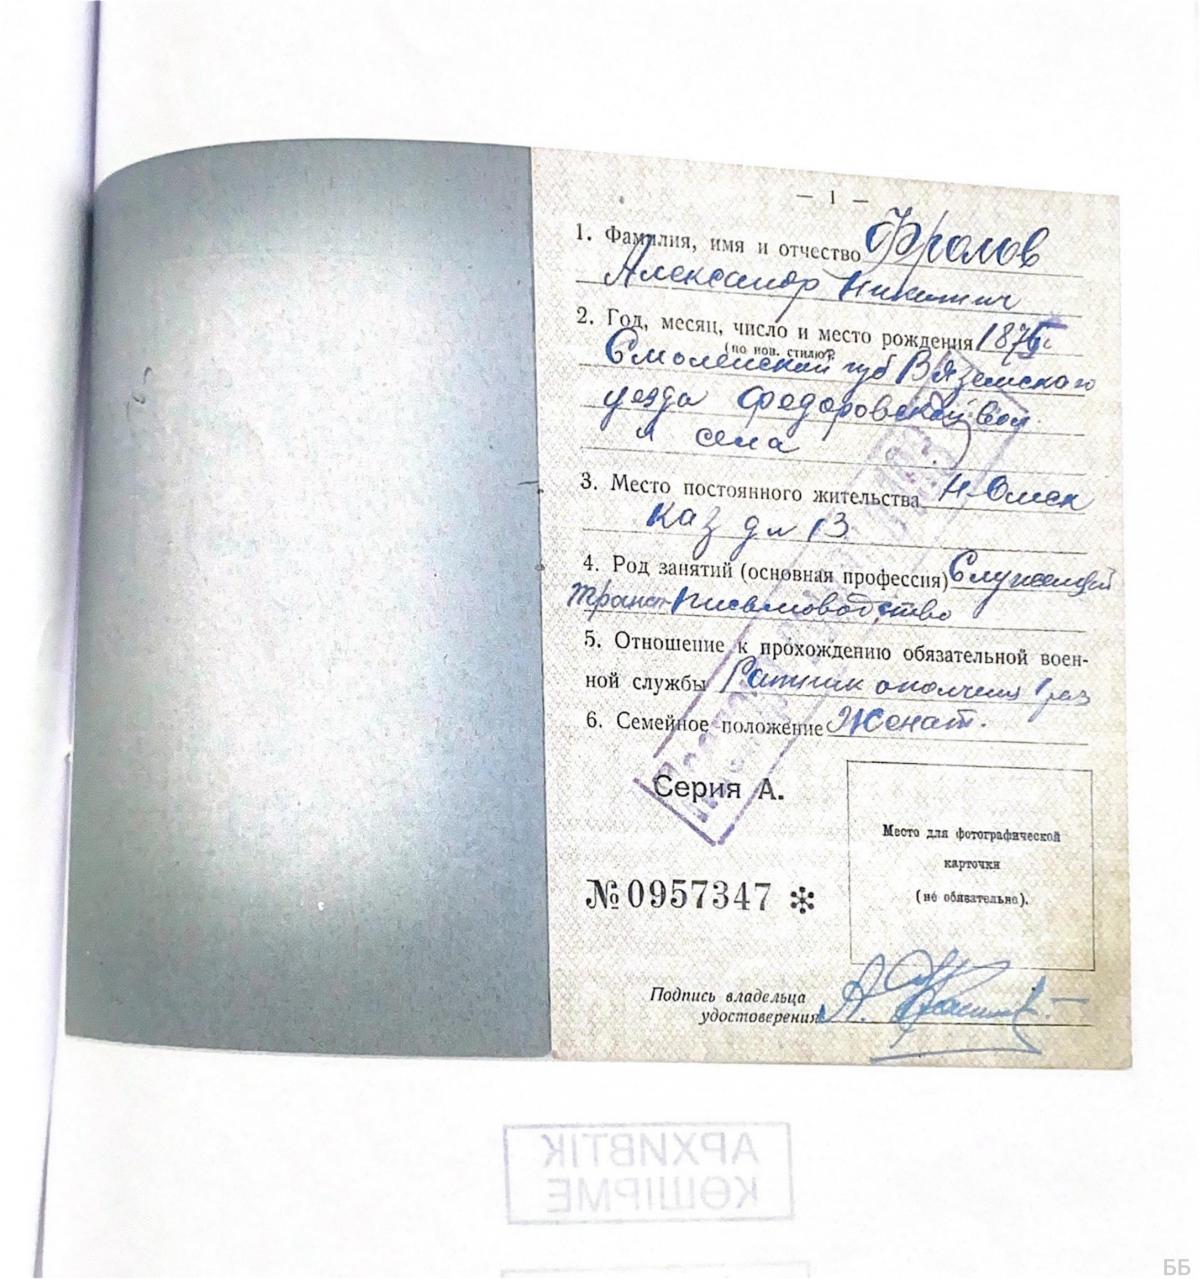 — 1 —
1. Фамилия, имя и отчество Фролов
Александр Никитич
2. Год, месяц, число и место рождения 1875г
(по нов. стилю)
Смоленской губ Вяземского
уезда Федоровской вол
села
3. Место постоянного жительства Н-Омск
Каз 13
4. Род занятий (основная профессия) Служащий
трансп письмоводство
5. Отношение к прохождению обязательной воен-
ной службы Ратник ополчения 1 раз
6. Семейное положение Женат.
Серия А.
Место для фотографической
карточки
(не обязательно).
№ 0957347 *
Подпись владельца
удостоверения А.
АРХИВТІК
КӨШІРМЕ
ББ